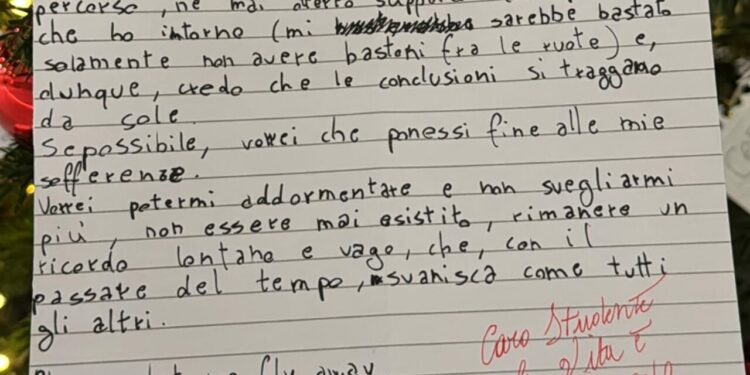 percorso, ne mai
che ho intorno (mi sarebbe bastato
solamente non avere bastoni fra le ruote) e,
dunque, credo che le conclusioni si traggano
da sole.
Se possibile, vorrei che ponessi fine alle mie
sofferenze.
Vorrei potermi addormentare e non svegliarmi
più, non essere mai esistito, rimanere un
ricordo lontano e vago, che, con il
passare del tempo, svanisca come tutti
gli altri.
fly away
Caro Studente
Vita è